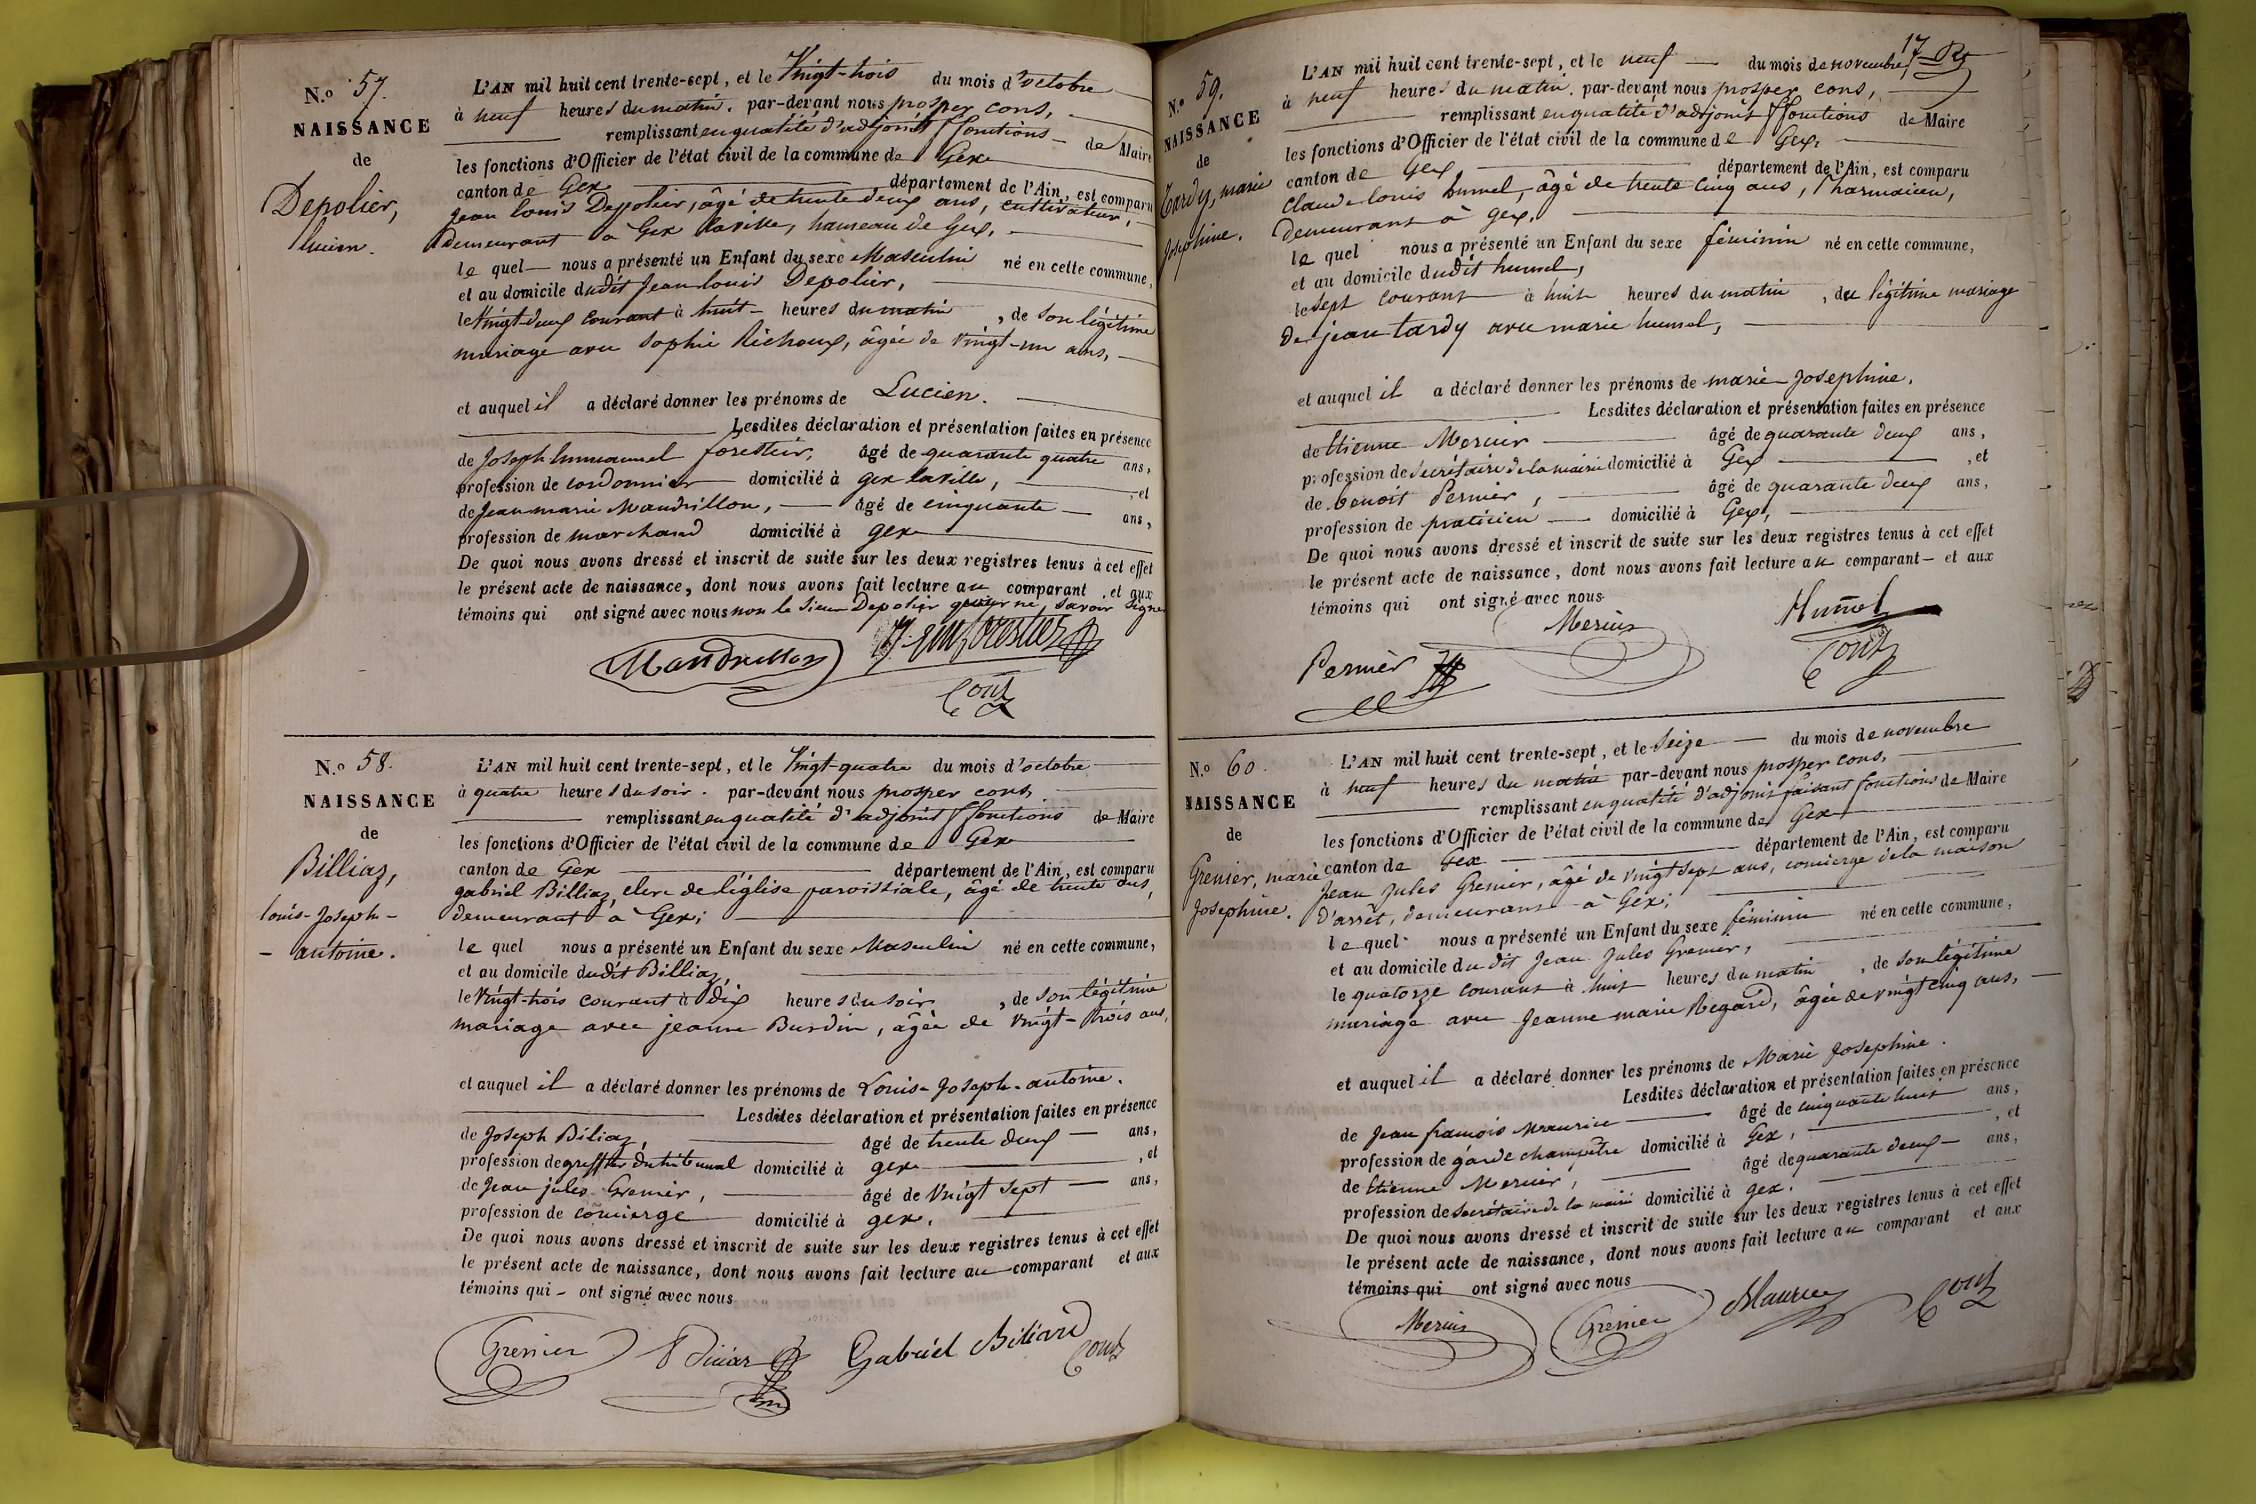 N.o 57.
NAISSANCE
de
Depolier,
lucien.
L'AN mil huit cent trente-sept, et le Vingt-trois du mois d'octobre
à neuf heures du matin. par-devant nous prosper cons,
remplissant en qualité d'adjoint ff fonctions de Maire
les fonctions d'Officier de l'état civil de la commune de Gex
canton de Gex département de l'Ain, est comparu
Jean louis Depolier, âgé de trente deux ans, cultivateur,
demeurant à Gex laville, hameau de Gex,
le quel nous a présenté un Enfant du sexe Masculin né en cette commune,
et au domicile dudit Jean louis Depolier,
le Vingt-deux courant à huit heures du matin, de son légitime
mariage avec Sophie Richoux, âgée de vingt-un ans,
et auquel il a déclaré donner les prénoms de Lucien.
Lesdites déclaration et présentation faites en présence
de Joseph Emmanuel forestier, âgé de quarante quatre ans,
profession de cordonnier domicilié à gex laville, et
de Jean marie Mandrillon, âgé de cinquante ans,
profession de marchand domicilié à gex
De quoi nous avons dressé et inscrit de suite sur les deux registres tenus à cet effet
le présent acte de naissance, dont nous avons fait lecture au comparant, et aux
témoins qui ont signé avec nous non le sieur Depolier pour ne savoir signer
Mandrillon
forestier
Cons
N.o 58.
NAISSANCE
de
Billiaz,
louis-Joseph-
- antoine.
L'AN mil huit cent trente-sept, et le Vingt-quatre du mois d'octobre
à quatre heures du soir. par-devant nous prosper cons,
remplissant en qualité d'adjoint ff fonctions de Maire
les fonctions d'Officier de l'état civil de la commune de Gex
canton de Gex département de l'Ain, est comparu
gabriel Billiaz, clerc de l'église paroissiale, âgé de trente ans,
demeurant à Gex;
le quel nous a présenté un Enfant du sexe Masculin né en cette commune,
et au domicile dudit Billiaz,
le Vingt-trois courant à dix heures du soir, de son légitime
mariage avec jeanne Burdin, âgée de vingt-trois ans,
et auquel il a déclaré donner les prénoms de Louis-Joseph-antoine.
Lesdites déclaration et présentation faites en présence
de Joseph Biliaz, âgé de trente deux ans,
profession de greffier du tribunal domicilié à gex, et
de Jean jules Grenier, âgé de Vingt sept ans,
profession de concierge domicilié à gex.
De quoi nous avons dressé et inscrit de suite sur les deux registres tenus à cet effet
le présent acte de naissance, dont nous avons fait lecture au comparant et aux
témoins qui - ont signé avec nous
Grenier
Gabriel Biliard
Cons
17
N.o 59.
NAISSANCE
de
Tardy, marie
Josephine.
L'AN mil huit cent trente-sept, et le neuf du mois de novembre
à neuf heures du matin. par-devant nous prosper cons,
remplissant en qualité d'adjoint ff fonctions de Maire
les fonctions d'Officier de l'état civil de la commune de Gex,
canton de Gex département de l'Ain, est comparu
Claude louis humel, âgé de trente cinq ans, Pharmacien,
demeurant à gex,
le quel nous a présenté un Enfant du sexe féminin né en cette commune,
et au domicile dudit humel,
le sept courant à huit heures du matin, du légitime mariage
de jean tardy avec marie humel,
et auquel il a déclaré donner les prénoms de marie Josephine.
Lesdites déclaration et présentation faites en présence
de Etienne Mercier âgé de quarante deux ans,
profession de secrétaire de la mairie domicilié à Gex, et
de benoit Pernier, âgé de quarante deux ans,
profession de praticien domicilié à Gex,
De quoi nous avons dressé et inscrit de suite sur les deux registres tenus à cet effet
le présent acte de naissance, dont nous avons fait lecture au comparant - et aux
témoins qui ont signé avec nous
Mercier
Humel
Pernier
Cons
N.o 60.
NAISSANCE
de
Grenier, marie
Josephine.
L'AN mil huit cent trente-sept, et le Seize du mois de novembre
à neuf heures du matin par-devant nous prosper cons,
remplissant en qualité d'adjoint faisant fonctions de Maire
les fonctions d'Officier de l'état civil de la commune de Gex
canton de Gex département de l'Ain, est comparu
Jean Jules Grenier, âgé de vingt sept ans, concierge de la maison
d'arrêt, demeurant à Gex;
le quel nous a présenté un Enfant du sexe féminin né en cette commune,
et au domicile du dit Jean Jules Grenier,
le quatorze courant à huit heures du matin, de son légitime
mariage avec Jeanne marie Regard, âgée de vingt cinq ans,
et auquel il a déclaré donner les prénoms de Marie Josephine.
Lesdites déclaration et présentation faites en présence
de Jean françois Maurice âgé de cinquante huit ans,
profession de garde champêtre domicilié à Gex, et
de Etienne Mercier, âgé de quarante deux ans,
profession de secrétaire de la mairie domicilié à gex.
De quoi nous avons dressé et inscrit de suite sur les deux registres tenus à cet effet
le présent acte de naissance, dont nous avons fait lecture au comparant et aux
témoins qui ont signé avec nous
Mercier
Grenier
Maurice
Cons